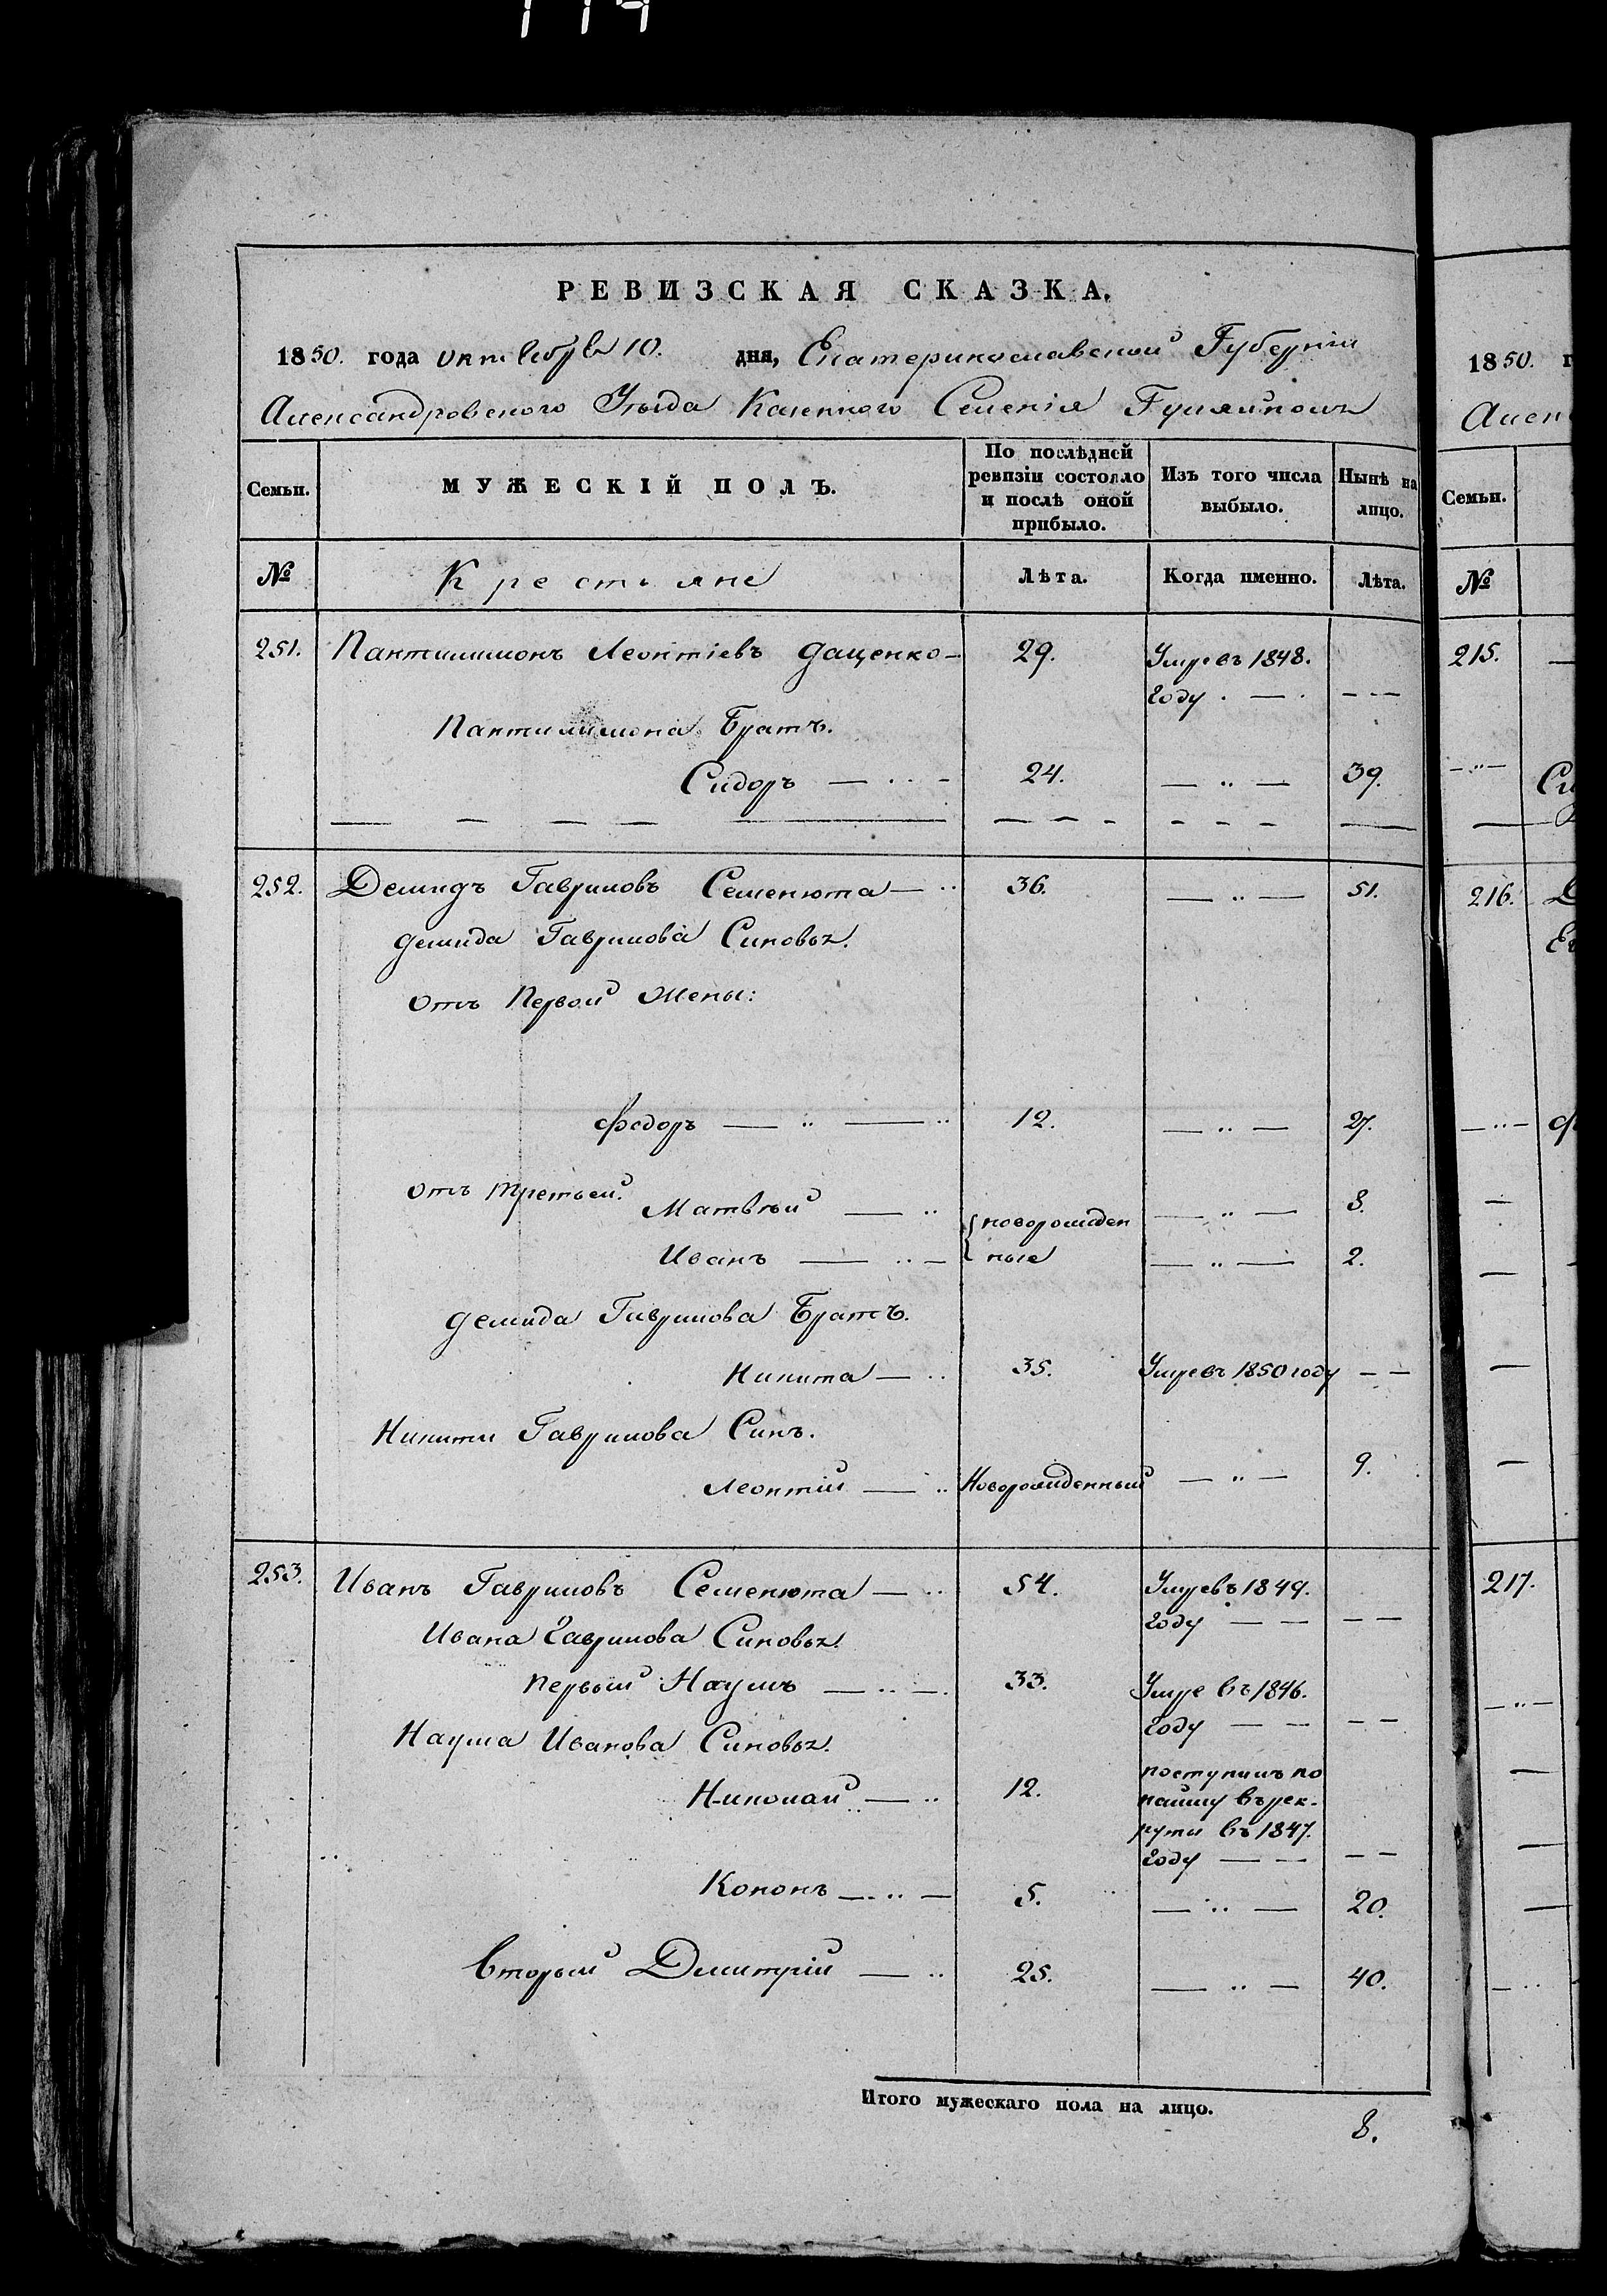 РЕВИЗСКАЯ СКАЗКА.
1850. года октября 10. дня, Екатеринославской Губерніи
Александровского Уѣзда Казенного Селенія Гуляйполя
Семьи. МУЖЕСКІЙ ПОЛЪ. По послѣдней ревизіи состояло и послѣ оной прибыло. Изъ того числа выбыло. Нынѣ на лицо.
№ Крестьяне Лѣта. Когда именно. Лѣта.
251. Пантилимонъ Леонтіевъ Даценко — 29. Умре въ 1848.
году . — . — —
Пантилимона Братъ.
Сидоръ — .. - 24. — .. — 39.
252. Демидъ Гавриловъ Семенюта — .. 36. — .. — 51.
Демида Гаврилова Сыновья.
Отъ Первой Жены:
Федоръ — .. — .. 12. — .. — 27.
Отъ третьей.
Матвѣй — .. новорожден — .. — 8.
Иванъ — .. — ные — .. — 2.
Демида Гаврилова Братъ.
Никита — .. 35. Умре въ 1850 году — —
Никиты Гаврилова Сынъ.
Леонтій — .. Новорожденный — .. — 9.
253. Иванъ Гавриловъ Семенюта — .. 54. Умре въ 1849.
году — — — —
Ивана Гаврилова Сыновья.
первый Наумъ — .. — 33. Умре въ 1846.
году — — — —
Наума Иванова Сыновья.
Николай — .. 12. поступилъ по
найму въ рек-
руты въ 1847.
году — — — —
Кононъ — .. — 5. — .. — 20.
Вторый Димитрій — .. 25. — .. — 40.
Итого мужескаго пола на лицо.
8.
1850. г
Алек
Семьи.
№
215. —
— .. — Си
216. Д
Ег
— .. — Ф
217.